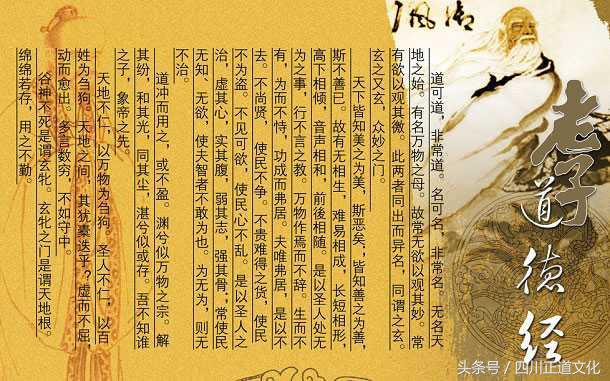 老子
道德经
道可道，非常道。名可名，非常名。无名天
地之始。有名万物之母。故常无欲以观其妙。常
有欲以观其微。此两者同出而异名，同谓之玄。
玄之又玄，众妙之门。
天下皆知美之为美，斯恶矣；皆知善之为善，
斯不善已。故有无相生，难易相成，长短相形，
高下相倾，音声相和，前後相随。是以圣人处无
为之事，行不言之教。万物作焉而不辞。生而不
有，为而不恃，功成而弗居。夫唯弗居，是以不
去。不尚贤， 使民不争。不贵难得之货，使民
不为盗。不见可欲，使民心不乱。是以圣人之
治，虚其心，实其腹，弱其志，强其骨；常使民
无知、无欲，使夫智者不敢为也。为无为，则无
不治。
道冲而用之，或不盈。渊兮似万物之宗。解
其纷，和其光，同其尘，湛兮似或存。吾不知谁
之子，象帝之先。
天地不仁，以万物为刍狗。圣人不仁，以百
姓为刍狗。天地之间，其犹橐迭乎？虚而不屈，
动而愈出。多言数穷，不如守中。
谷神不死是谓玄牝。玄牝之门是谓天地根。
绵绵若存，用之不勤。
头条号／四川正道文化